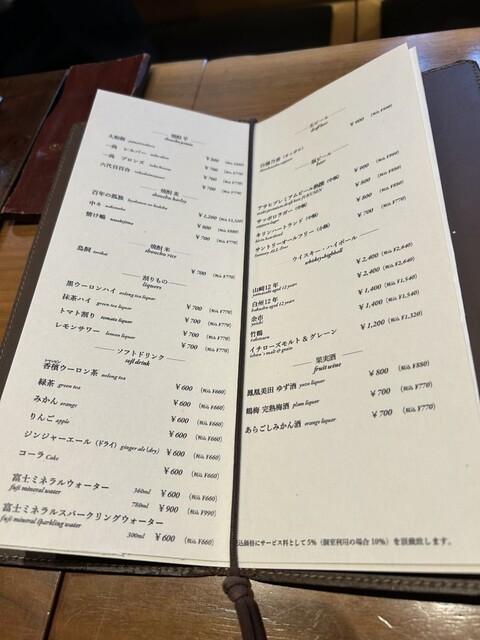 焼酎 芋 shouchu potato
¥800 (税込 ¥880)
一尚 シルバー
¥700 (税込 ¥770)
一尚 ブロンズ
¥700 (税込 ¥770)
六代目百合
¥700 (税込 ¥770)
焼酎 麦 shouchu barley
百年の孤独 hyakunen no kodoku
¥1,200 (税込 ¥1,320)
中々 nakanaka
¥800 (税込 ¥880)
¥700 (税込 ¥770)
焼酎 米 shouchu rice
鳥飼 torikai
¥700 (税込 ¥770)
割りもの liquers
黒ウーロンハイ oolong tea liquor
¥700 (税込 ¥770)
抹茶ハイ green tea liquor
¥700 (税込 ¥770)
トマト割り tomato liquor
¥700 (税込 ¥770)
レモンサワー lemon liquor
¥700 (税込 ¥770)
ソフトドリンク soft drink
香檳ウーロン茶 oolong tea
¥600 (税込 ¥660)
緑茶 green tea
¥600 (税込 ¥660)
みかん orange
¥600 (税込 ¥660)
りんご apple
¥600 (税込 ¥660)
ジンジャーエール (ドライ) ginger ale (dry)
¥600 (税込 ¥660)
コーラ Coke
¥600 (税込 ¥660)
富士ミネラルウォーター
fuji mineral water
360ml ¥600 (税込 ¥660)
780ml ¥900 (税込 ¥990)
富士ミネラルスパークリングウォーター
fuji mineral sparkling water
300ml ¥600 (税込 ¥660)
生ビール draft beer
¥800 (税込 ¥880)
瓶ビール beer
アサヒプレミアムビール熟撰 (中瓶)
¥900 (税込 ¥990)
サッポロラガー (中瓶)
¥800 (税込 ¥880)
キリンハートランド (中瓶)
¥800 (税込 ¥880)
サントリーオールフリー (小瓶)
¥700 (税込 ¥770)
ウイスキー・ハイボール
whiskey,highball
山崎12年 yamazaki aged 12 years
¥2,400 (税込 ¥2,640)
白州12年 hakushu aged 12 years
¥2,400 (税込 ¥2,640)
余市 yoichi
¥1,400 (税込 ¥1,540)
竹鶴 taketsuru
¥1,400 (税込 ¥1,540)
イチローズモルト & グレーン
ichiro's malt & grain
¥1,200 (税込 ¥1,320)
果実酒
fruit wine
鳳凰美田 ゆず酒 yuzu liquor
¥800 (税込 ¥880)
鶴梅 完熟梅酒 plum liquor
¥700 (税込 ¥770)
あらごしみかん酒 orange liquor
¥700 (税込 ¥770)
込価格にサービス料として5% (個室利用の場合10%) を頂戴致します。